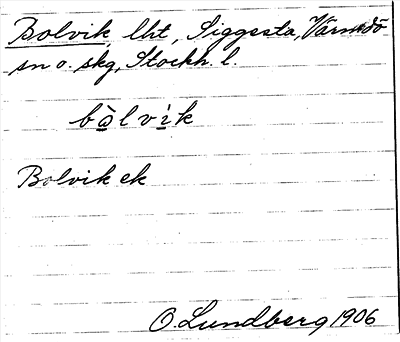 Bolvik, lht, Siggesta, Värmdö
sn o. skg, Stockh. l.
bålvik
Bolvik ek
O. Lundberg 1906